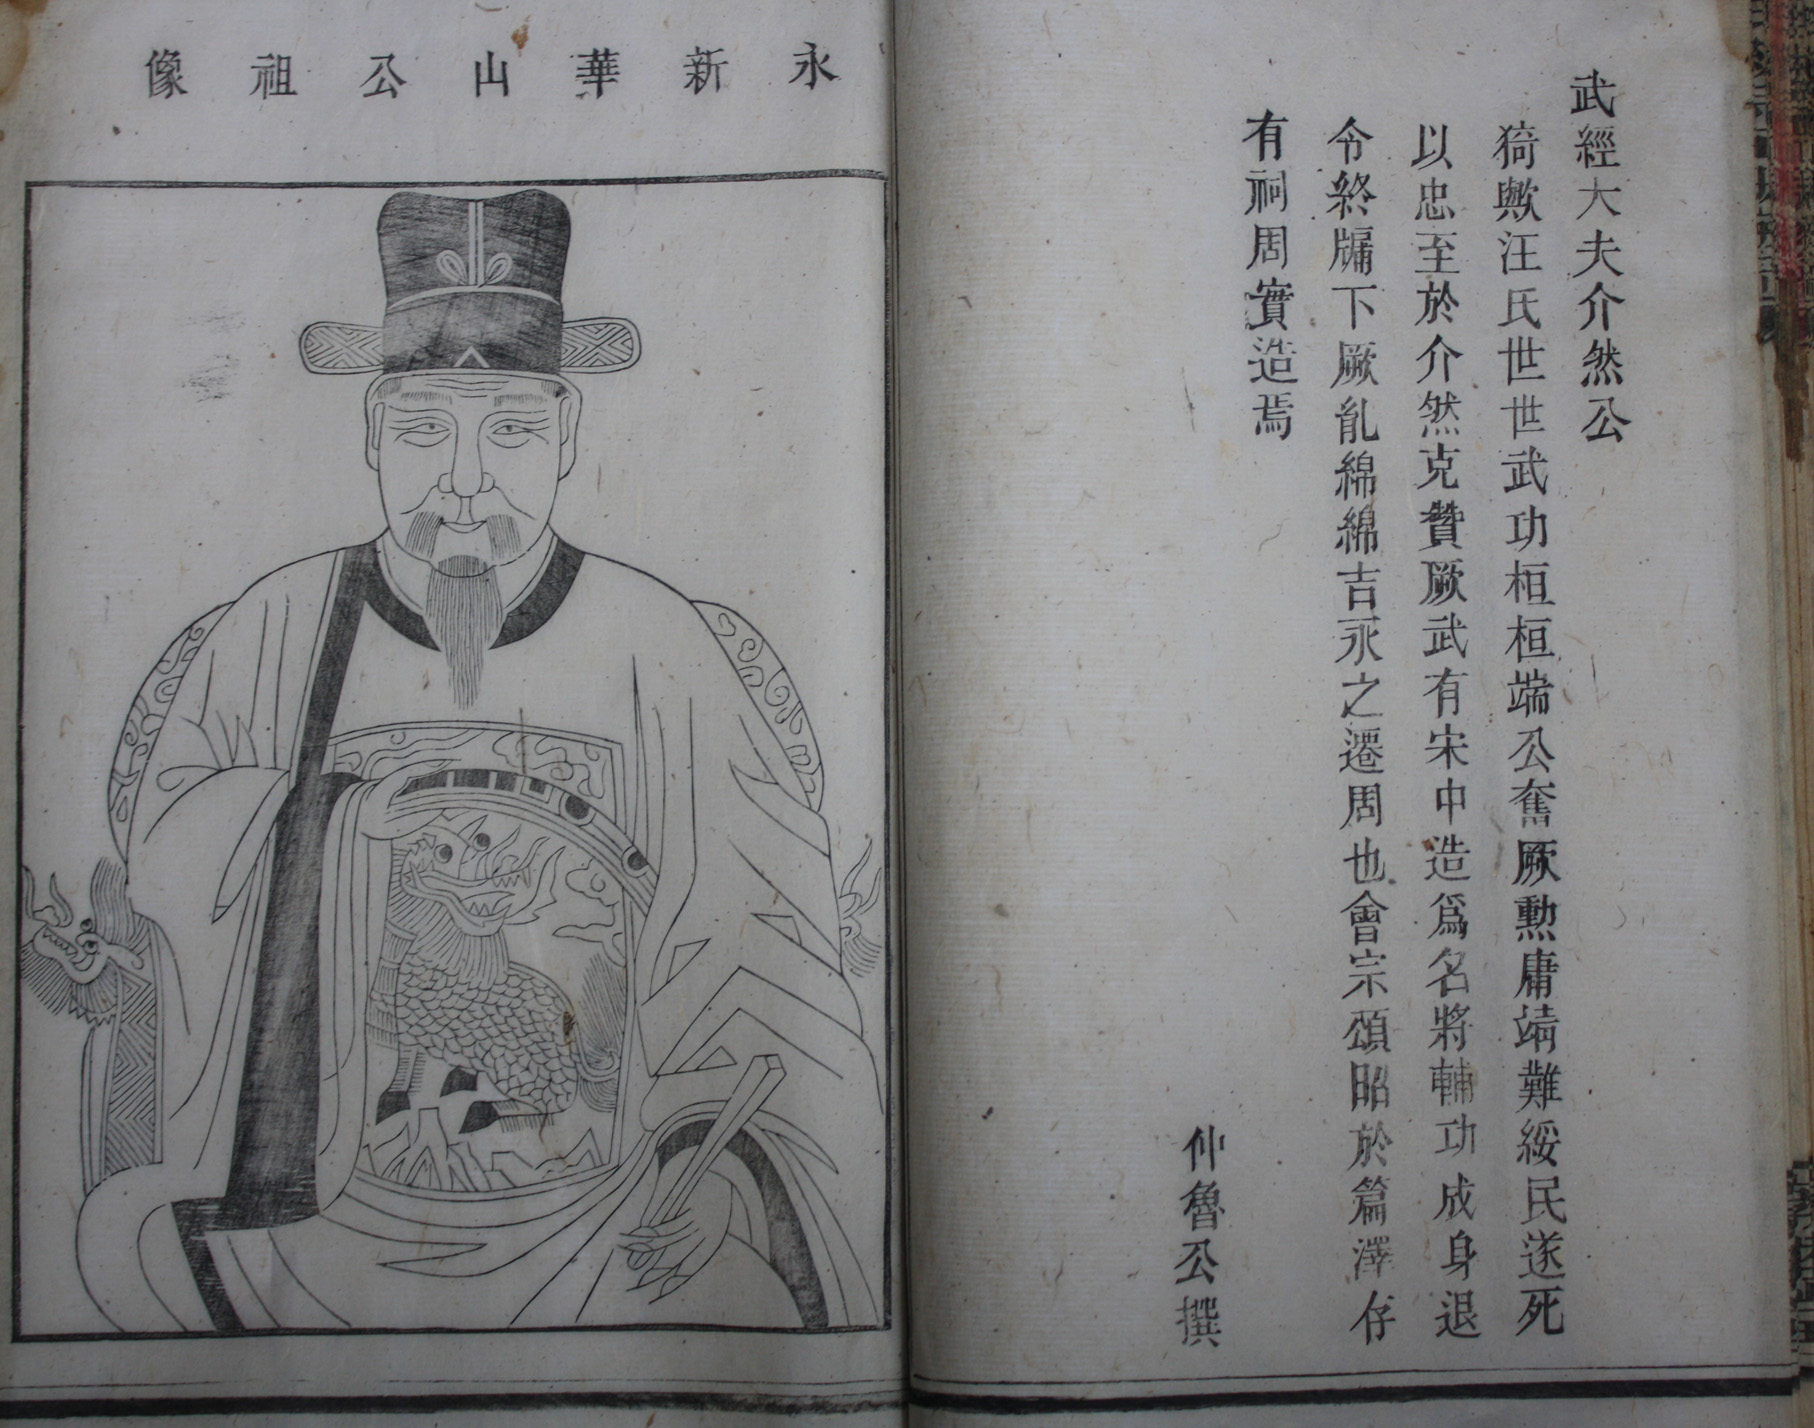 武經大夫介然公
猗歟汪氏世世武功桓桓端公奮厥勲庸靖難綏民遂死
以忠至於介然克贊厥武有宋中造爲名將輔功成身退
令終牖下厥亂綿綿吉永之遷周也會宗頌昭於篇澤存
有祠周實造焉
仲魯公撰
永新華山公祖像